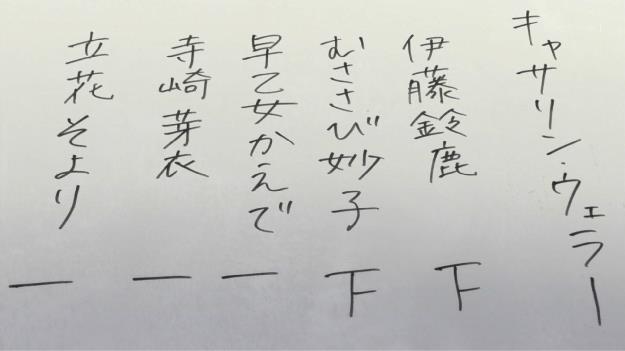 キャサリン・ウェラー
伊藤鈴鹿 下
むささび妙子 下
早乙女かえで 一
寺崎芽衣 一
立花そより 一